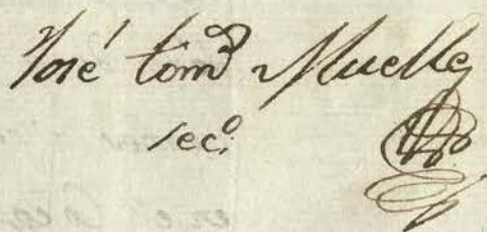 José Tomˢ Muelle
secº